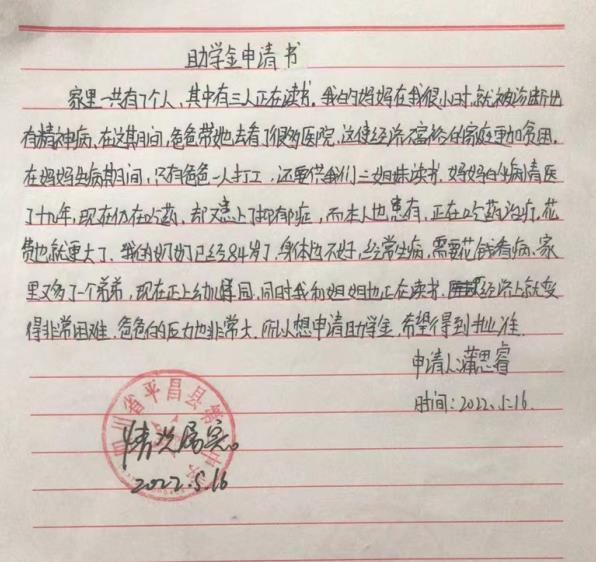 助学金申请书
家里一共有7个人，其中有三人正在读书。我的妈妈在我很小时，就被诊断出
有精神病，在这期间，爸爸带她去看了很多医院，这使经济不富裕的家庭更加贫困。
在妈妈生病期间，只有爸爸一人打工，还要供我们三姐妹读书。妈妈的生病请医
了十九年，现在仍在吃药，却又患上了抑郁症，而本人也患有，正在吃药治疗，花
费也就更大了。我的奶奶已经84岁了，身体也不好，经常生病，需要花钱看病，家
里又多了一个弟弟，现在正上幼儿园，同时我和姐姐也正在读书，经济上就变
得非常困难，爸爸的压力也非常大。所以想申请助学金，希望得到批准
申请人：蒲思睿
时间：2022.5.16.
四川省平昌县第中学
情况属实。
2022.5.16